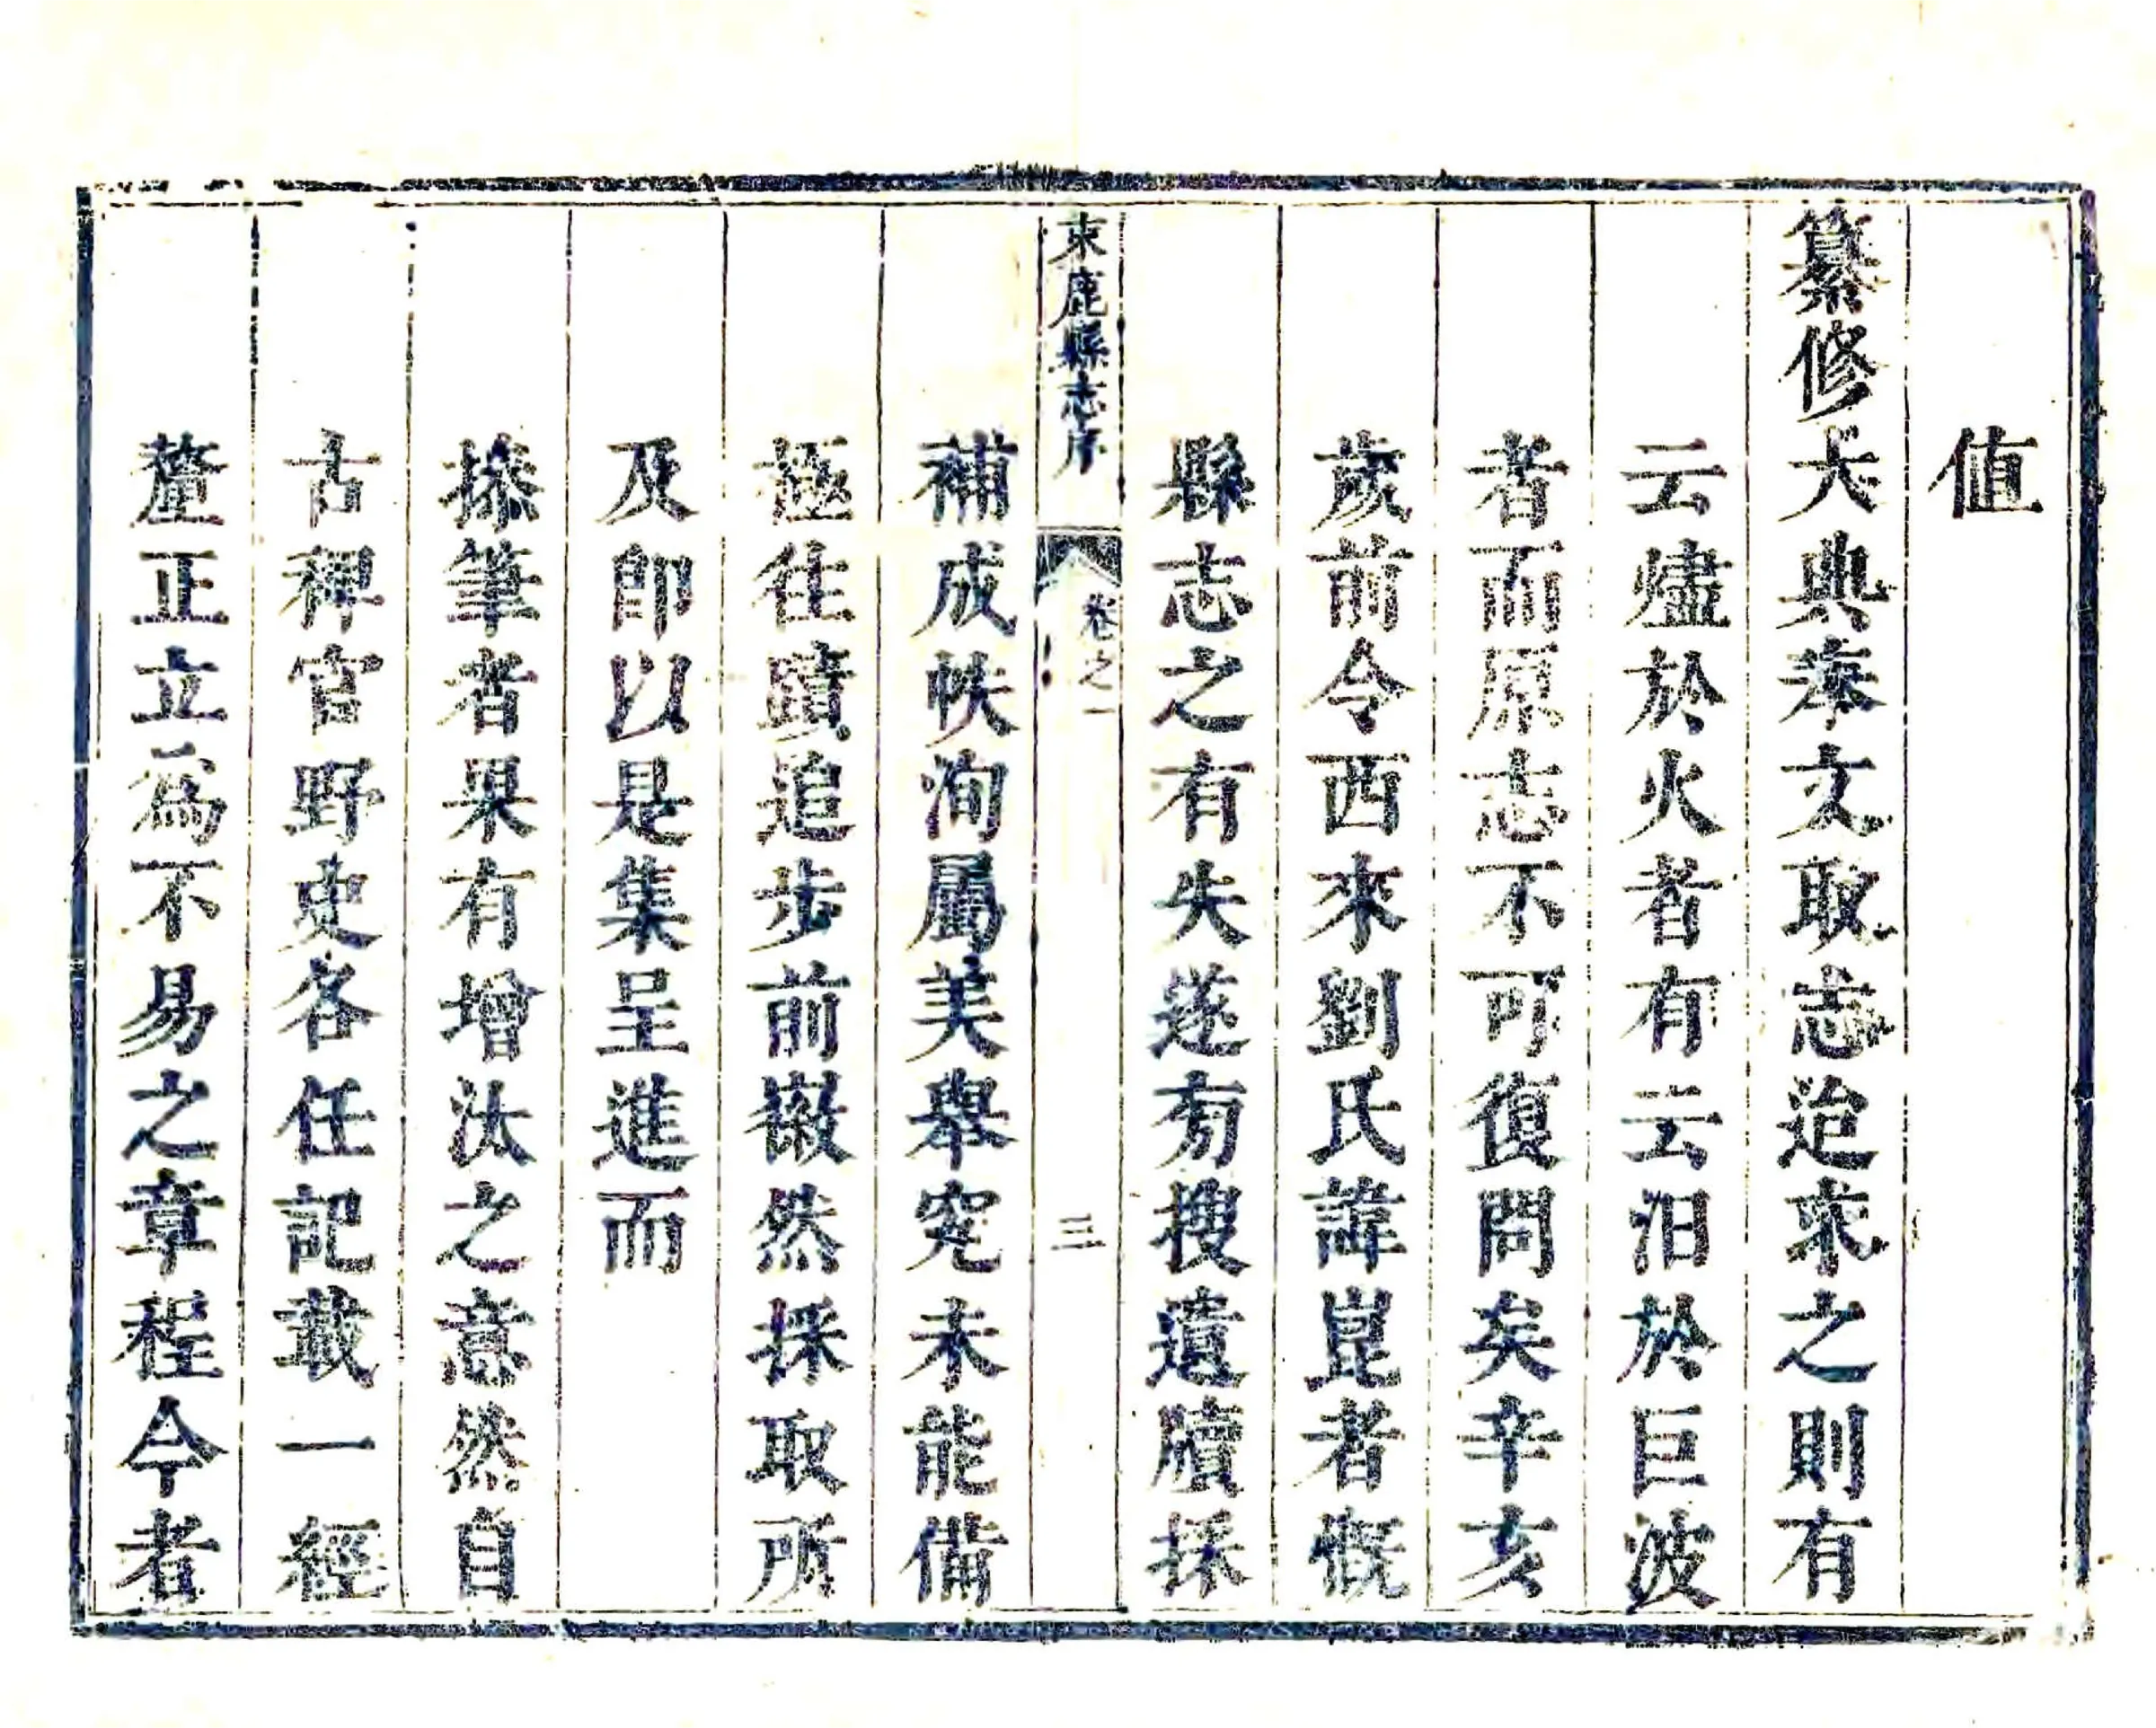 值
纂修大典奉文取志迨求之則有
云燼於火者有云汨於巨波
者而原志不可復問矣辛亥
歲前令西來劉氏諱崑者慨
縣志之有失遂旁搜遺牘採
束鹿縣志序 卷之一 三
補成帙洵屬美舉究未能備
極往蹟追步前徽然採取所
及即以是集呈進而
操筆者果有增汰之意然自
古稗官野史各任記載一經
釐正立為不易之章程今者